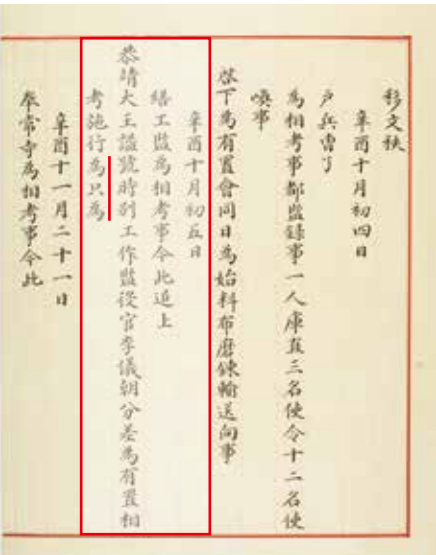 移文秩
辛酉十月初四日
戶兵曹了
為相考事都監錄事一人庫直三名使令十二名使
喚事
啓下為有置會同日為始料布磨鍊輸送向事
辛酉十月初五日
繕工監為相考事今此追上
恭靖大王諡號時別工作監役官李儀朝分差為有置相
考施行為只為
辛酉十一月二十一日
奉常寺為相考事今此